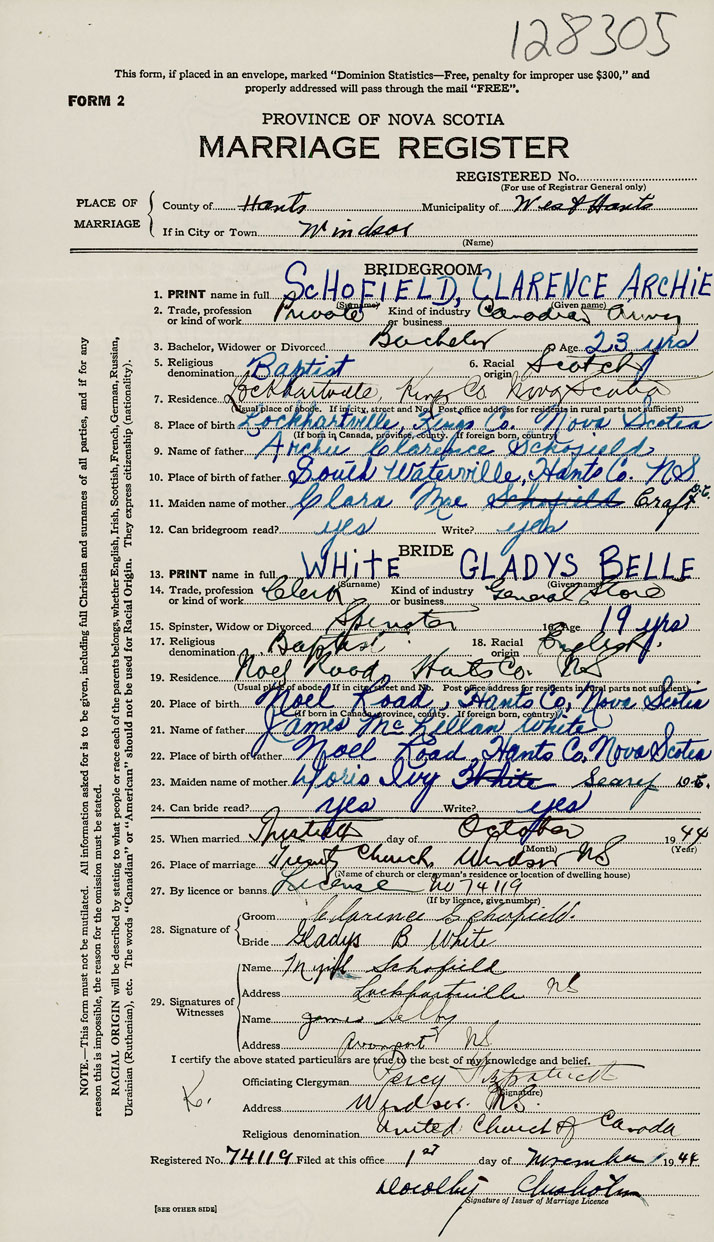 128305
This form, if placed in an envelope, marked "Dominion Statistics—Free, penalty for improper use $300," and
properly addressed will pass through the mail "FREE".
FORM 2
PROVINCE OF NOVA SCOTIA
MARRIAGE REGISTER
REGISTERED No.
(For use of Registrar General only)
PLACE OF MARRIAGE
County of Hants Municipality of West Hants
If in City or Town Windsor
(Name)
BRIDEGROOM
1. PRINT name in full SCHOFIELD, CLARENCE ARCHIE
(Surname) (Given name)
2. Trade, profession or kind of work Private Kind of industry or business Canadian Army
3. Bachelor, Widower or Divorced Bachelor 4. Age 23 yrs
5. Religious denomination Baptist 6. Racial origin Scotch
7. Residence Lockhartville, Kings Co Nova Scotia
(Usual place of abode. If in city, street and No. Post office address for residents in rural parts not sufficient)
8. Place of birth Lockhartville, Kings Co. Nova Scotia
(If born in Canada, province, county. If foreign born, country)
9. Name of father Archie Clarence Schofield
10. Place of birth of father South Waterville, Hants Co. NS
11. Maiden name of mother Clara Mae Schofield Craft
12. Can bridegroom read? yes Write? yes
BRIDE
13. PRINT name in full WHITE GLADYS BELLE
(Surname) (Given name)
14. Trade, profession or kind of work Clerk Kind of industry or business General Store
15. Spinster, Widow or Divorced Spinster 16. Age 19 yrs
17. Religious denomination Baptist 18. Racial origin English
19. Residence Noel Road, Hants Co. NS
(Usual place of abode. If in city street and No. Post office address for residents in rural parts not sufficient)
20. Place of birth Noel Road, Hants Co, Nova Scotia
(If born in Canada, province, county. If foreign born, country)
21. Name of father James McLellan White
22. Place of birth of father Noel Road, Hants Co. Nova Scotia
23. Maiden name of mother Doris Ivy White
24. Can bride read? yes Write? yes
25. When married day of October 1944
(Month) (Year)
26. Place of marriage Church, Windsor NS
(Name of church or clergyman's residence or location of dwelling house)
27. By licence or banns License No 74119
(If by licence, give number)
28. Signature of
Groom Clarence Schofield.
Bride Gladys B White
29. Signatures of Witnesses
Name Schofield
Address Lockhartville NS
Name James Selby
Address Avonport NS
I certify the above stated particulars are true to the best of my knowledge and belief.
Officiating Clergyman Percy Fitzpatrick
(Signature)
K.
Address Windsor. NS.
Religious denomination United Church of Canada
Registered No. 74119 Filed at this office 1st day of November 1944
Dorothy Chisholm
Signature of Issuer of Marriage Licence
[SEE OTHER SIDE]
NOTE.—This form must not be mutilated. All information asked for is to be given, including full Christian and surnames of all parties, and if for any
reason this is impossible, the reason for the omission must be stated.
RACIAL ORIGIN will be described by stating to what people or race each of the parents belongs, whether English, Irish, Scottish, French, German, Russian,
Ukrainian (Ruthenian), etc. The words "Canadian" or "American" should not be used for Racial Origin. They express citizenship (nationality).